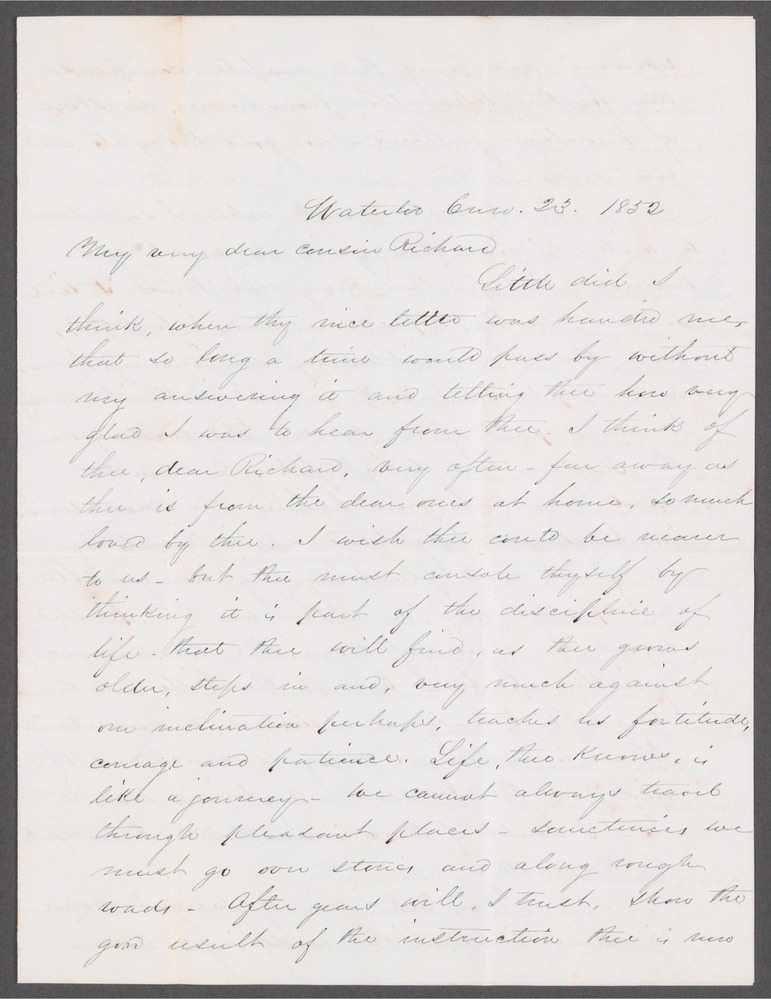 Waterloo 23. 1852
My very dear cousin Richard
Little did I
think, when thy nice letter was handed me,
that so long a time would pass by without
my answering it and telling thee how very
glad I was to hear from thee. I think of
thee, dear Richard, very often - far away as
thee is from the dear ones at home, so much
loved by thee. I wish thee could be nearer
to us - but thee must console thyself by
thinking it is part of the discipline of
life - that thee will find, as thee grows
older, steps in and, very much against
our inclination perhaps, teaches us fortitude,
courage and patience. Life, thee knows, is
like a journey - We cannot always travel
through pleasant places - sometimes we
must go over stones and along rough
roads - After years will, I trust, show the
good result of the instruction thee is now